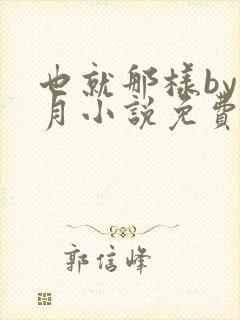 也就那樣by
月小說免費
郭信峰